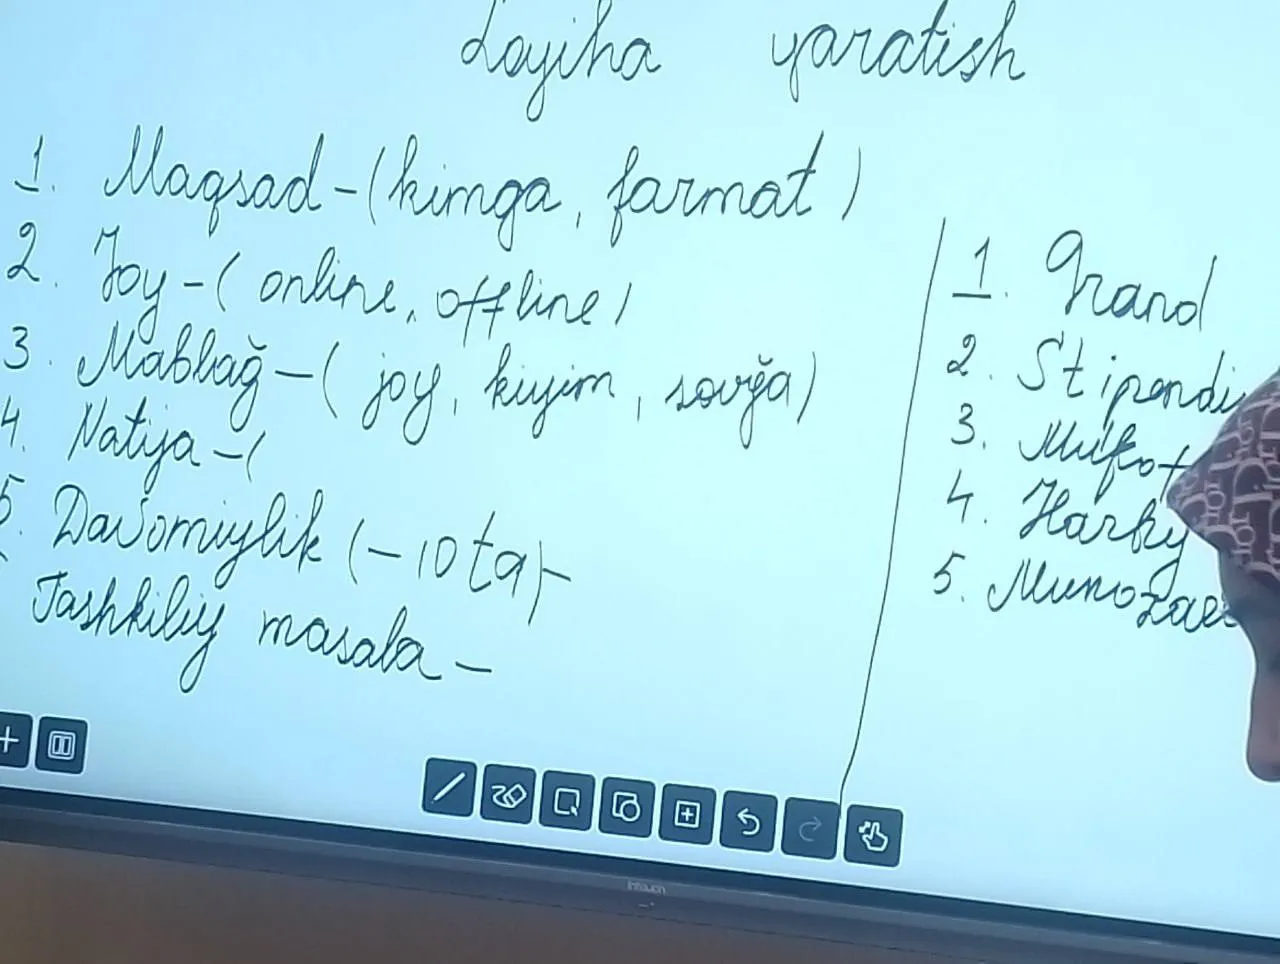 Loyiha yaratish
1. Maqsad-(kimga, farmat)
2. Joy-(online, offline)
3. Mablağ-(joy, kiyim, sovğa)
4. Natija-(
5. Davomiylik (-10 ta)-
Tashkiliy masala-
1. Grand
2. Stipendi
3. 
4. Harby
5. Munozae
Intouch